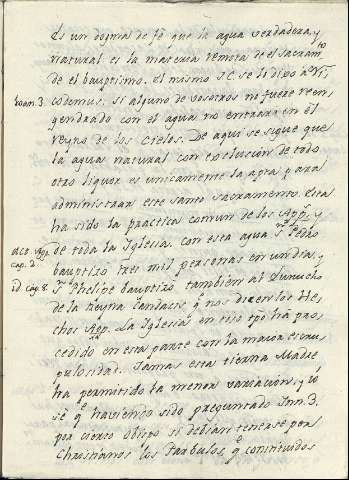 Es un dogma de fé que la agua verdadera, y
natural es la materia remota de el sacramto
de el bauptismo. El mismo J.C. se lo dixo a Ni-
Joan. 3. codemus: si alguno de vosotros no fuere reen
gendrado con el agua no entrará en el
reyno de los Cielos. De aqui se sigue que
la agua natural con exclucion de todo
otro liquor es unicamente la apta para
administrar este santo sacramento. Esta
ha sido la practica comun de los App.s y
Act. App. cap. 2. de toda la Iglesia. Con esta agua Sn. Pedro
bauptizo tres mil personas en un dia, y
id cap. 8. Sn. Phelipe bauptizo tambien al Eunucho
de la Reyna Candacis qe. nos dicen los He-
chos App. La Iglesia en esto tpo ha pro
cedido en esta parte con la maior escru
pulosidad. Jamas esta tierna Madre
ha permitido la menor variacion, y
se qe. haviendo sido preguntado Inn. 3.
por cierto Obispo si debian tenerse por
Christianos los Parbulos, qe. constituidos